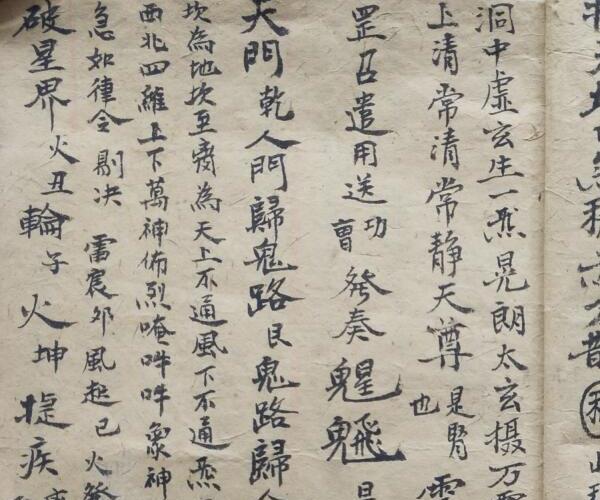 洞中虛玄生一炁晃朗太玄摄万
上清常清常静天尊是腎也
罡召遣用送功曹發奏魁魒
天門乾人門歸鬼路艮鬼路歸
坎為地坎至為天上不通風下不通炁
西北四維上下萬神佈烈唵吽吽象神
急如律令剔决雷震卯風起巳火發
破星界火丑輪子火坤捉疾